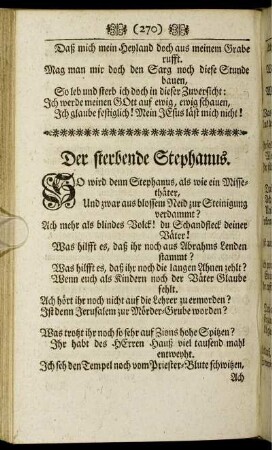 (270)
Daß mich mein Heyland doch aus meinem Grabe
rufft.
Mag man mir doch den Sarg noch diese Stunde
bauen,
So leb und sterb ich doch in dieser Zuversicht:
Ich werde meinen GOtt auf ewig, ewig schauen,
Ich glaube festiglich! Mein JEsus läst mich nicht!
Der sterbende Stephanus.
SO wird denn Stephanus, als wie ein Misse-
thäter,
Und zwar aus blossem Neid zur Steinigung
verdammt?
Ach mehr als blindes Volck! du Schandfleck deiner
Väter!
Was hilfft es, daß ihr noch aus Abrahms Lenden
stammt?
Was hilfft es, daß ihr noch die langen Ahnen zehlt?
Wenn euch als Kindern noch der Väter Glaube
fehlt.
Ach hört ihr noch nicht auf die Lehrer zu ermorden?
Ist denn Jerusalem zur Mörder-Grube worden?
Was trotzt ihr noch so sehr auf Zions hohe Spitzen?
Ihr habt des HErren Hauß viel tausend mahl
entweyht.
Ich seh den Tempel noch vom Priester-Blute schwitzen,
Ach